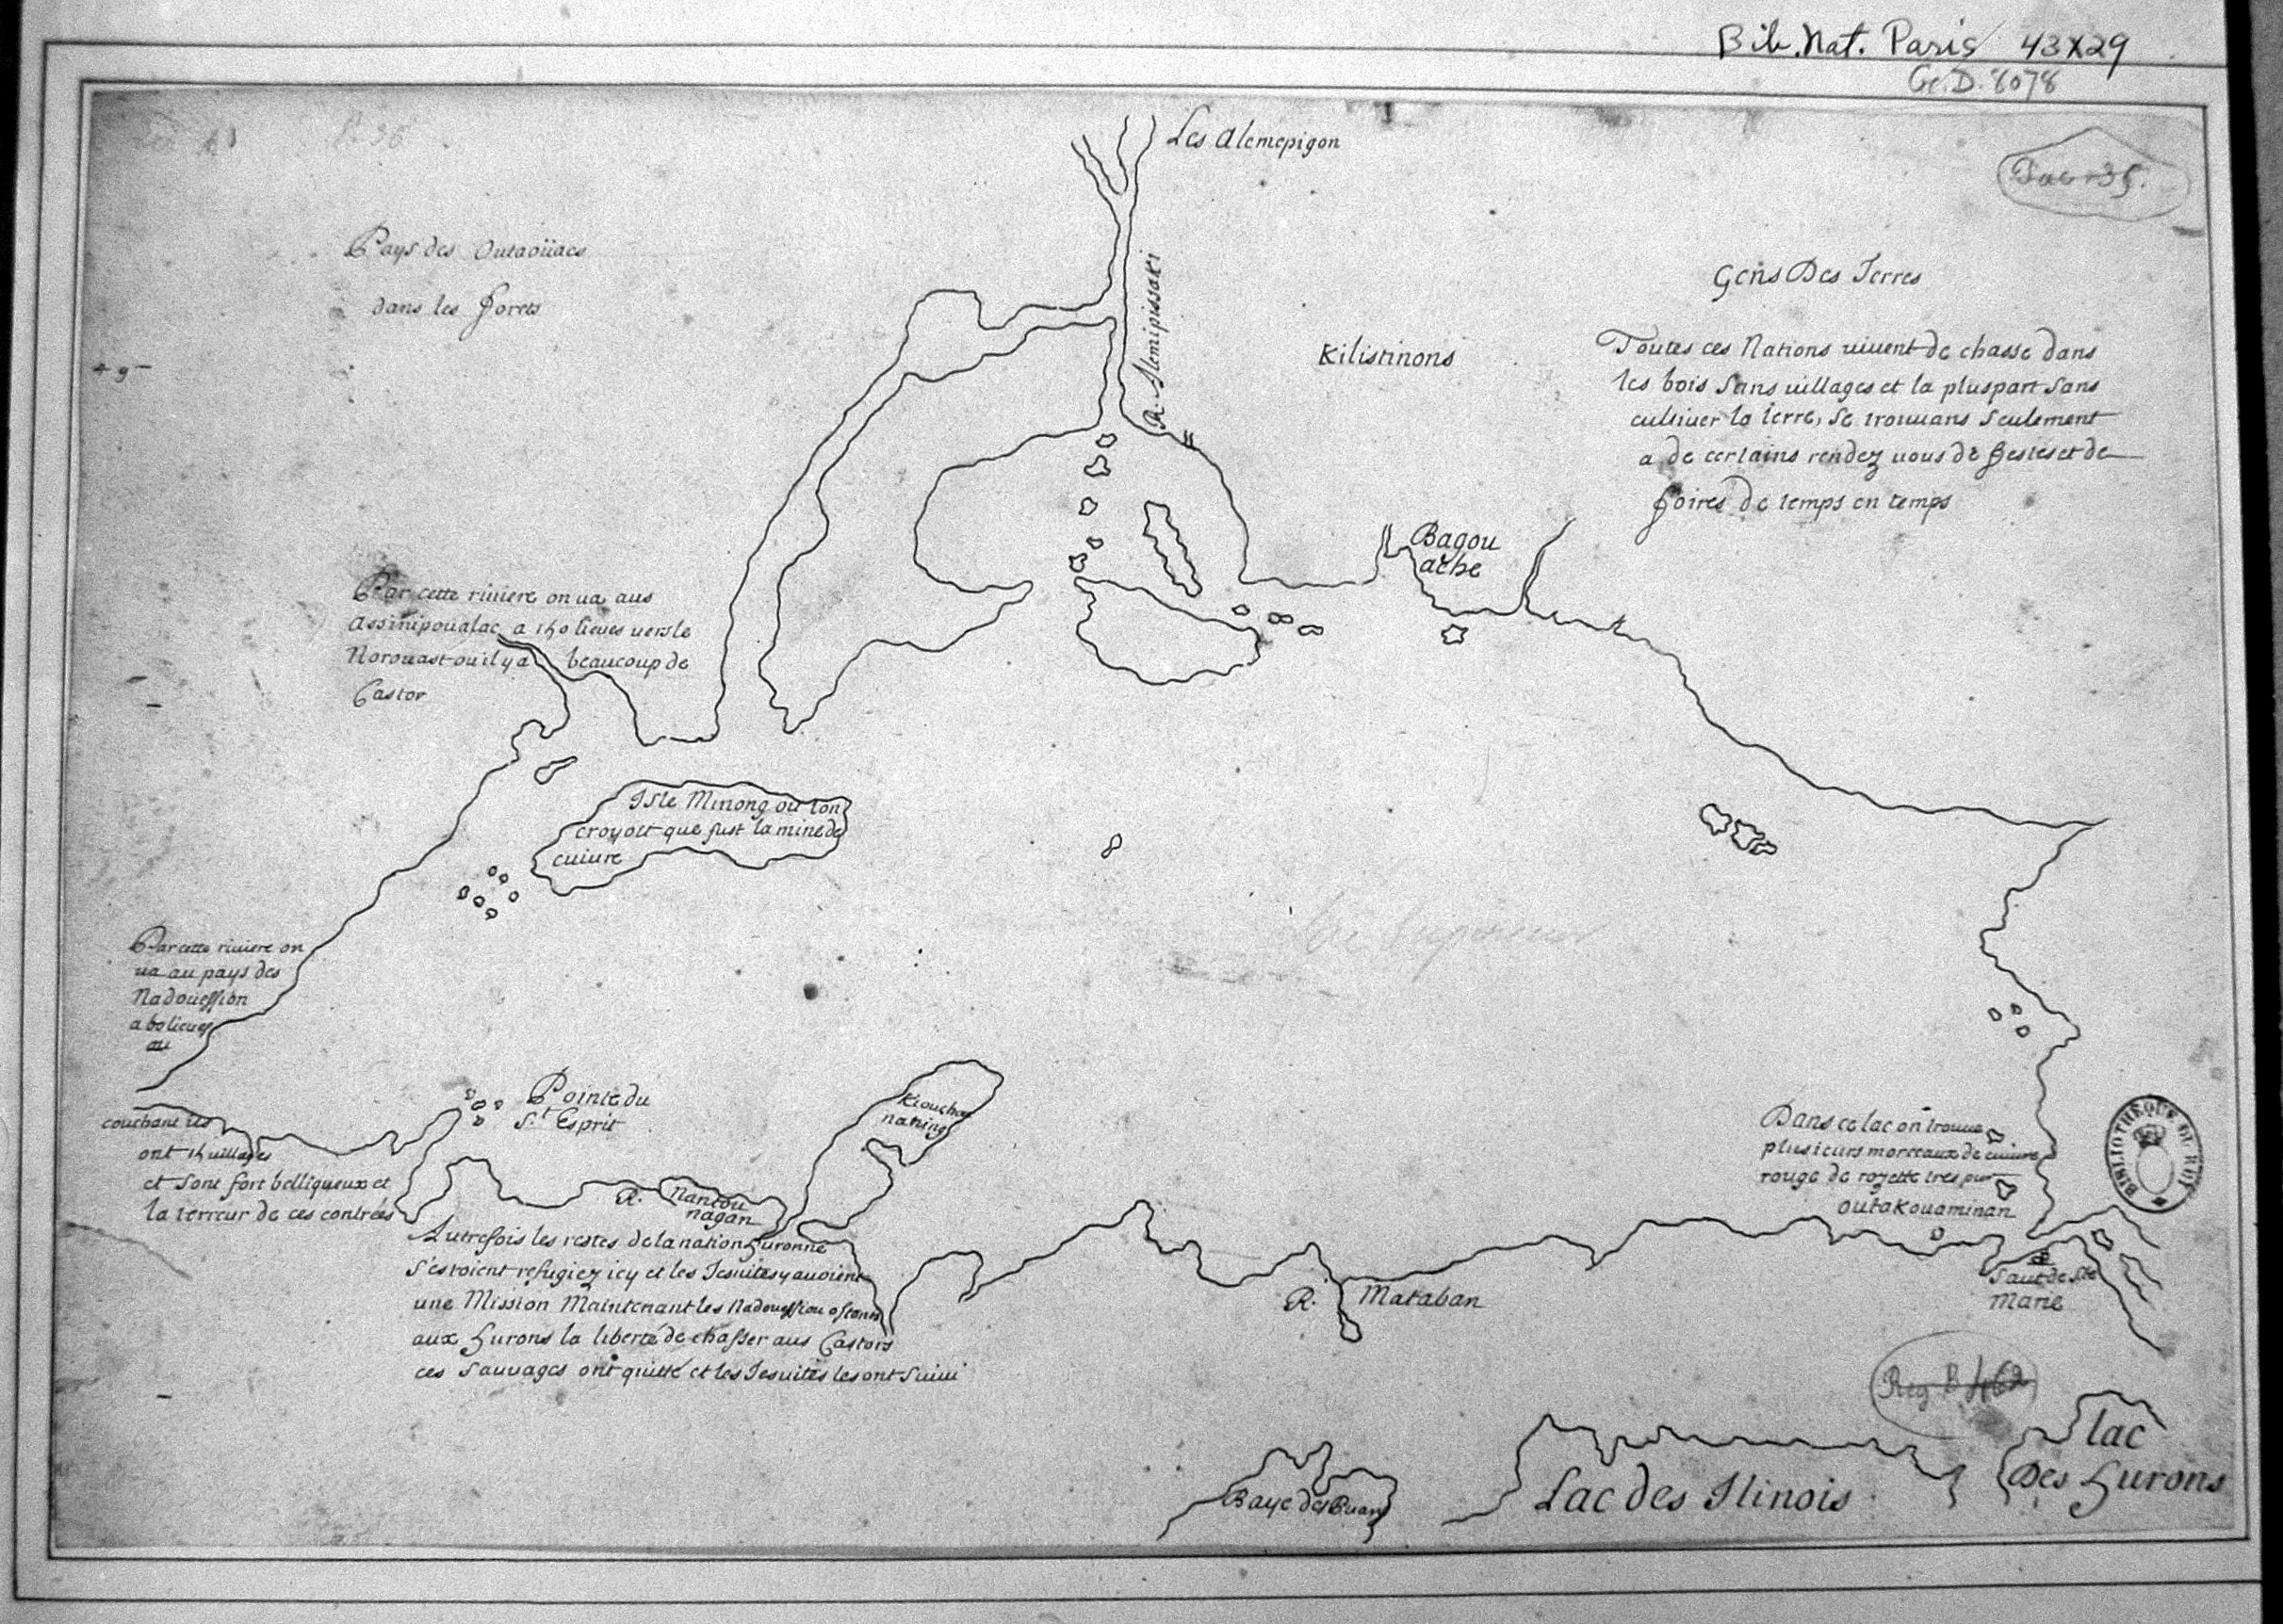 Bib. Nat. Paris 43X29
Ge. D. 8078
Les Alemepigon
Pays des Outaoüacs
dans les forets
R. Alemipissaki
Kilistinons
Gens Des Terres
Toutes ces Nations uiuent de chasse dans
les bois sans uillages et la pluspart sans
cultiuer la terre, se trouuans seulement
a de certains rendez uous de festes et de
foires de temps en temps
Bagou
ache
Par cette riuiere on ua aus
Assinipoualac a 150 lieues uers le
Norouast ou il y a beaucoup de
Castor
Isle Minong ou lon
croyoit que fust la mine de
cuiure
Lac Superieur
Par cette riuiere on
ua au pays des
Nadouession
a 60 lieues
au
couchant ils
ont 15 uillages
et sont fort belliqueux et
la terreur de ces contrées
Pointe du
St Esprit
Kiouchou
naning
R. Nantou
nagan
Autrefois les restes de la nation huronne
s'estoient refugiez icy et les Jesuites y auoient
une Mission Maintenant les Nadouessiou ostants
aux hurons la liberté de chasser aus Castors
ces sauuages ont quitté et les Jesuites les ont suiui
Dans ce lac on trouue
plusieurs morceaux de cuiure
rouge de rozette tres pur
Outakouaminan
BIBLIOTHEQUE DU ROY
R. Mataban
Saut de Ste
Marie
Reg. B 462
Baye des Puans
Lac des Ilinois
lac
Des hurons